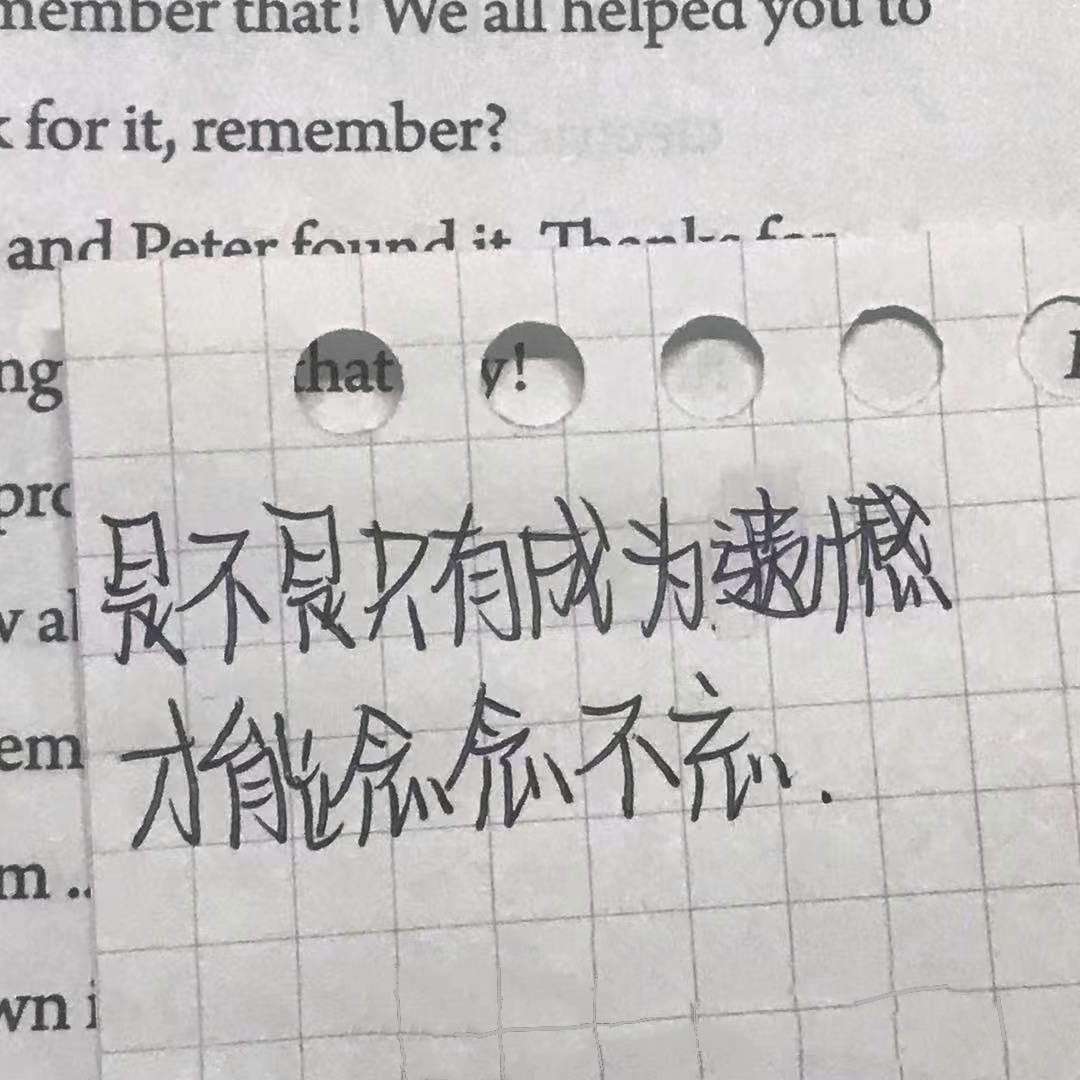 member that! We all helped you to
for it, remember?
and Peter found it. Thanks for
ng that y!
是不是只有成为遗憾
al
才能念念不忘.
em
m ..
wn i